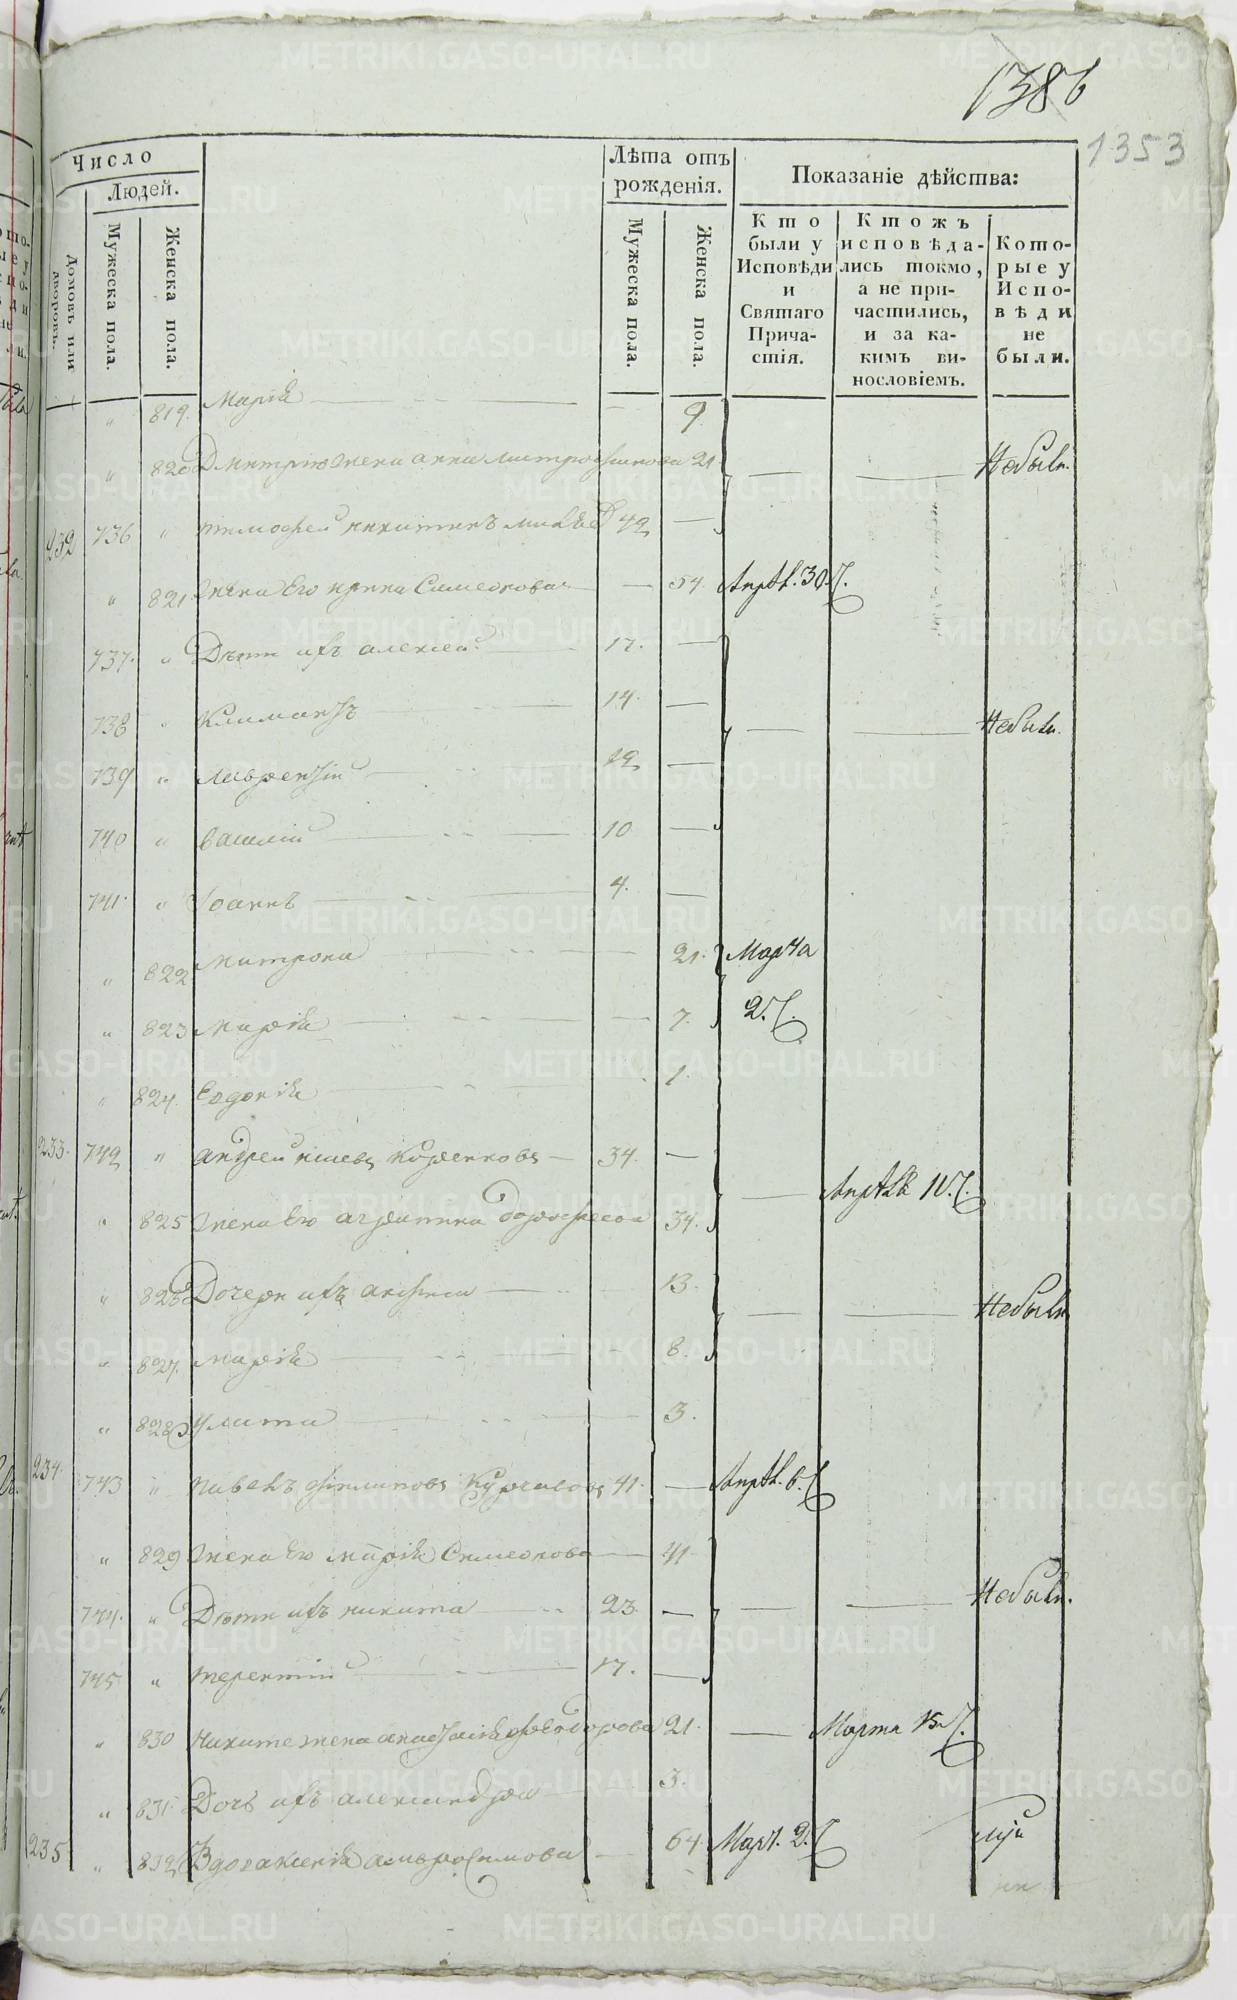 1386
1353
Число
Людей.
Домовъ или дворовъ.
Мужеска пола.
Женска пола.
Лѣта отъ рожденія.
Мужеска пола.
Женска пола.
Показаніе дѣйства:
Кто были у Исповѣди и Святаго Причастія.
Ктожъ исповѣдались токмо, а не причастились, и за какимъ винословіемъ.
Которые у Исповѣди не были.
" 819. Марія — 9.
" 820 Дмитрію жена анна митрофанова 21 — — Небыли.
232 736 " тимофей никитинъ 42 —
" 821 жена Его ирина Симеонова — 54. Апрѣл. 30.
737. " Дѣти ихъ алексей 17. —
738 " Климантъ 14. — — — Небыли.
739 " лаврентій 12 —
740 " василій 10 —
741. " Іоаннъ 4. —
" 822 матрона — 21. Марта
" 823 марія — 7. 2.
" 824. Евдокія — 1.
233. 742 " андрей Куренковъ — 34. —
— Апрѣля 10.
" 825 жена Его агрипина дорофеева 34.
" 826 Дочери ихъ — 13.
— — Небыли
" 827. марія — 8.
" 828 улита — 3.
234. 743 " павелъ филиповъ 41. — Апрѣл. 6.
" 829 жена Его марія Симеонова — 41
744. " Дѣти ихъ никита 23. — — — Небыли.
745 " терентій 17. —
" 830 Никите жена анастасія феодорова 21. — Марта 15.
" 831. Дочь ихъ александра 3.
235 " 832 Вдова ксенія амвросимова — 64. Март. 2.